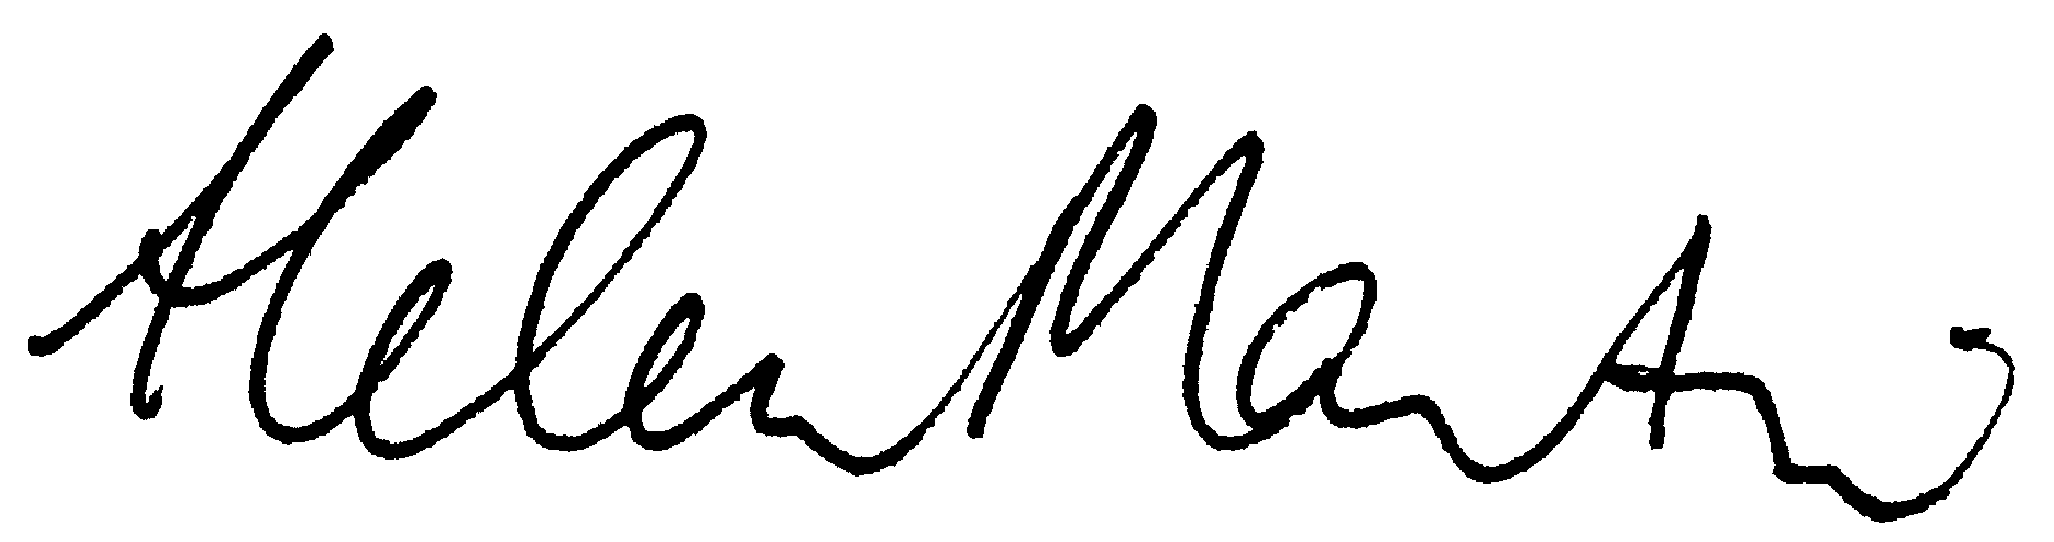 Helen Martin